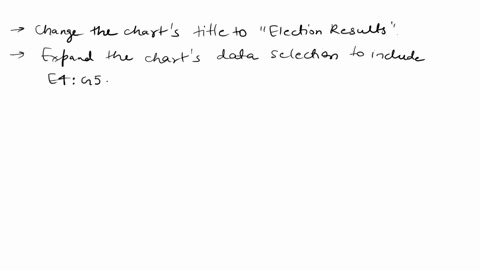 → Change the chart's title to "Election Results".
→ Expand the chart's data selection to include
E4:G5.